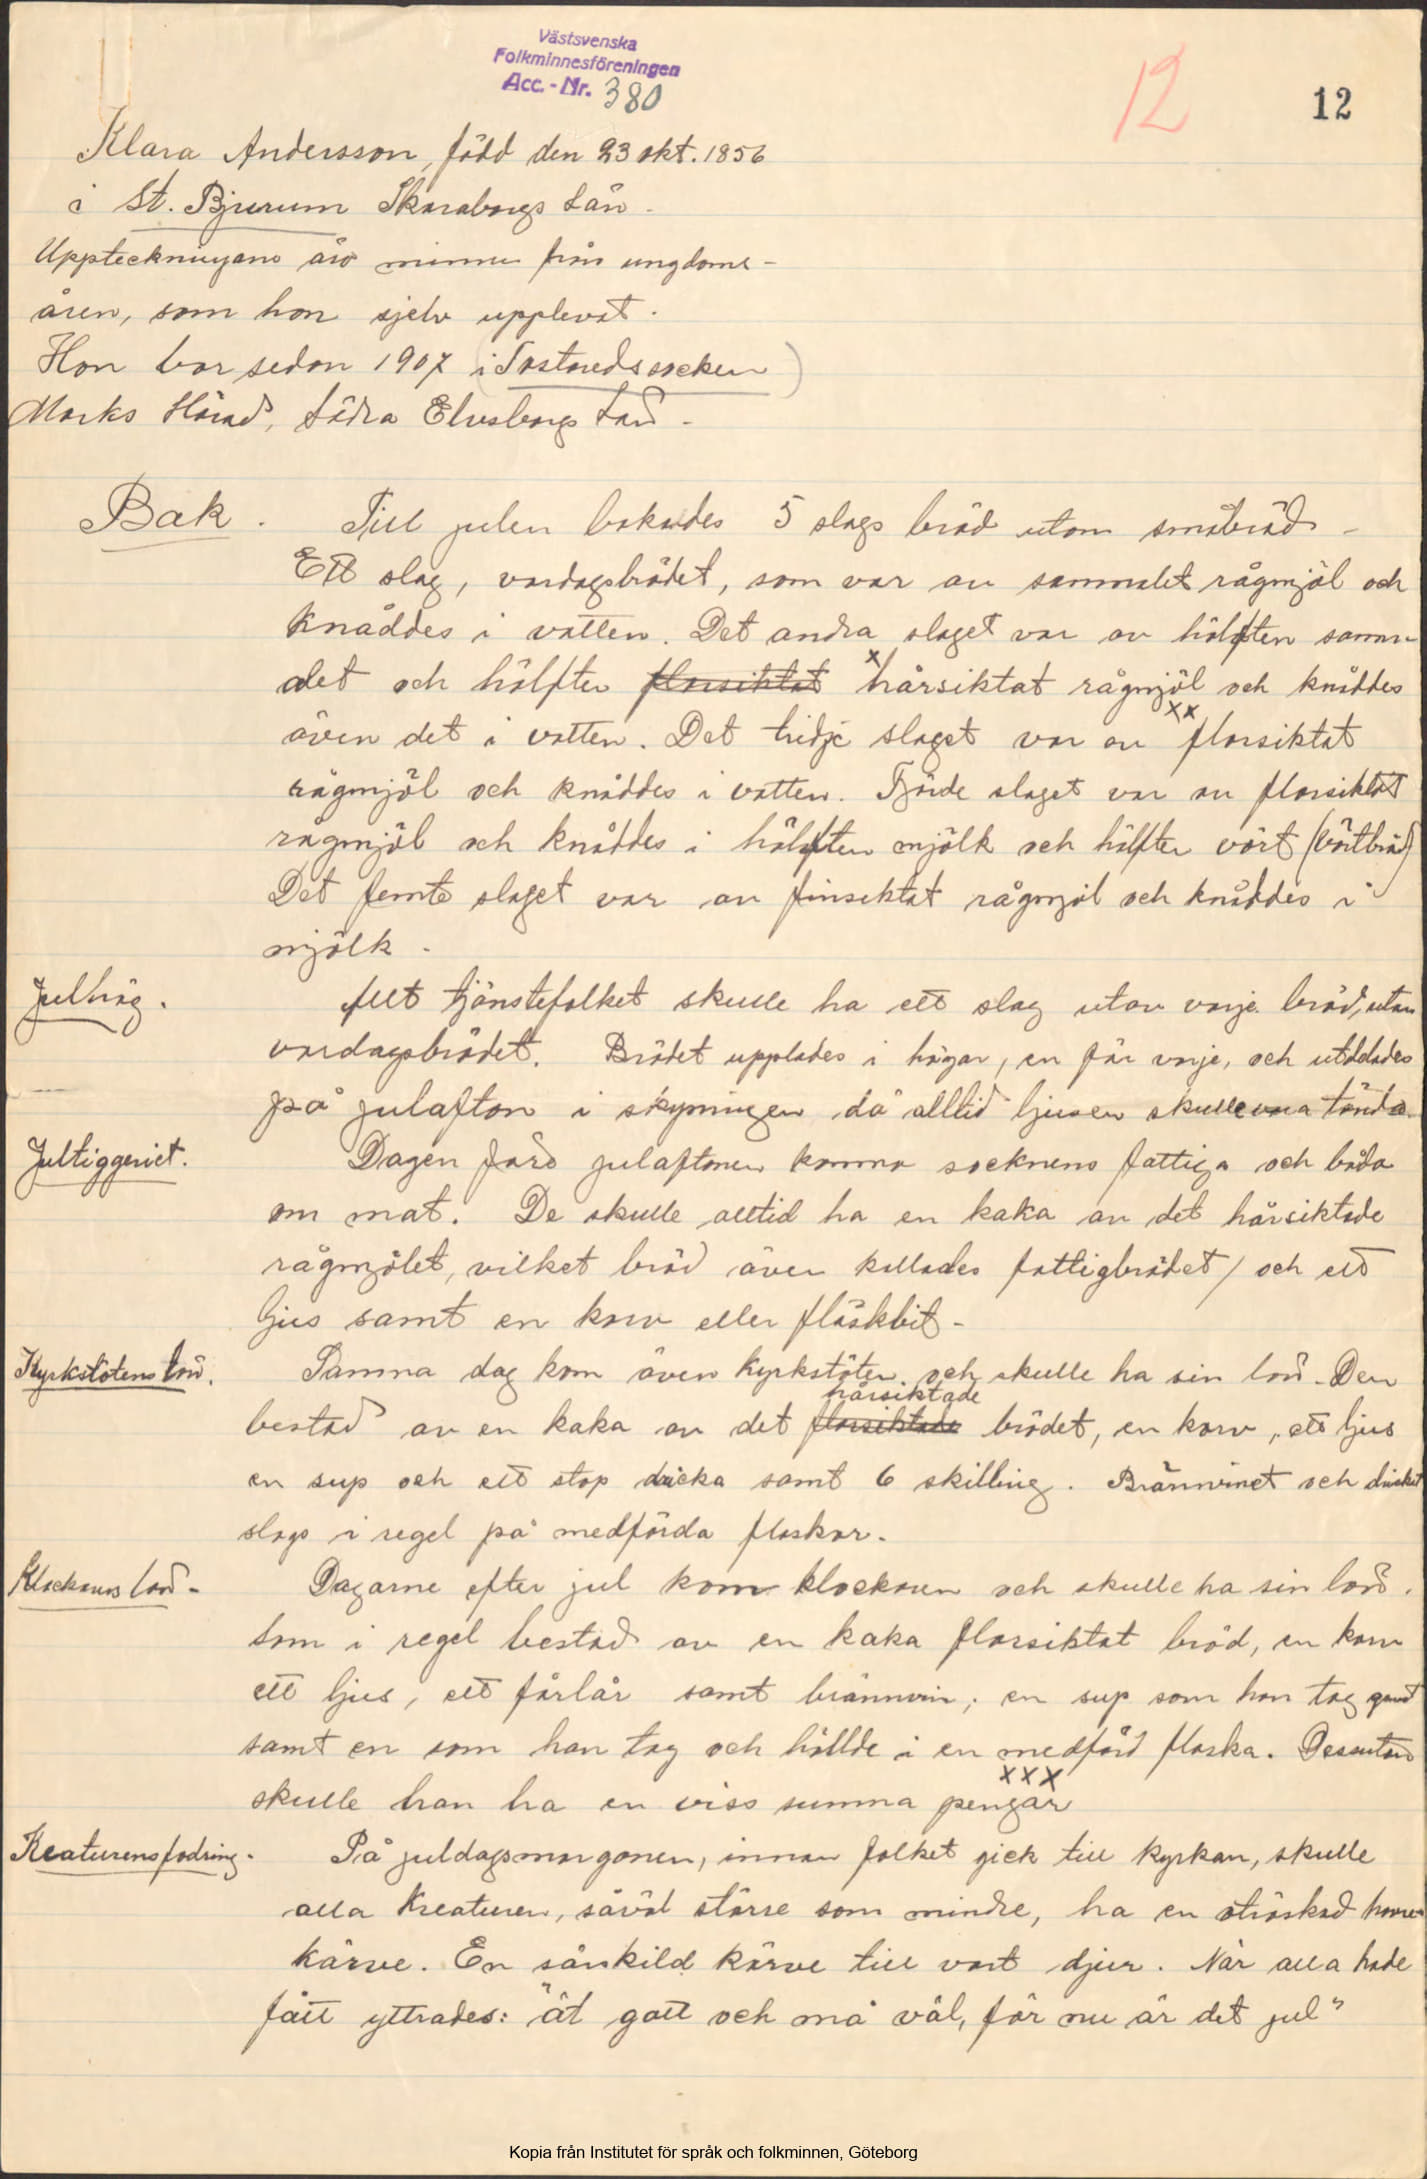 Västsvenska
Folkminnesföreningen
Acc.-Nr. 380
12 12
Klara Andersson, född den 23 okt. 1856
i St. Bjurum Skaraborgs Län.
Uppteckningarne äro minnen från ungdoms-
åren, som hon sjelv upplevat.
Hon bor sedan 1907 (i Tostareds socken)
Marks Härad, Södra Elvsborgs Län.
Bak. Till julen bakades 5 slags bröd utom småbröd.
Ett slag, vardagsbrödet, som var av sammalet rågmjöl och
knåddes i vatten. Det andra slaget var av hälften samm-
alet och hälften florsiktat x hårsiktat rågmjöl och knåddes
även det i vatten. Det tridje slaget var av xx florsiktat
rågmjöl och knåddes i vatten. Fjärde slaget var av florsiktat
rågmjöl och knåddes i hälften mjölk och hälften vört (vörtbröd)
Det femte slaget var av finsiktat rågmjöl och knåddes i
mjölk.
Julhög. Allt tjänstefolket skulle ha ett slag utav varje bröd, utom
vardagsbrödet. Brödet upplades i högar, en för varje, och utdelades
på julafton i skymningen då alltid ljusen skulle vara tända.
Jultiggeriet. Dagen före julaftonen komma socknens fattiga och båda
om mat. De skulle alltid ha en kaka av det hårsiktade
rågmjölet, vilket bröd även kallades fattigbrödet / och ett
ljus samt en korv eller fläskbit.
Kyrkstötens lön. Samma dag kom även kyrkstöten och skulle ha sin lön. Den
hårsiktade
bestod av en kaka av det florsiktade brödet, en korv, ett ljus
en sup och ett stop dricka samt 6 skilling. Brännvinet och drickat
slogs i regel på medförda flaskor.
Klockarens lön. Dagarne efter jul kom klockaren och skulle ha sin lön.
Som i regel bestod av en kaka florsiktat bröd, en korv
ett ljus, ett fårlår samt brännvin; en sup som han tog genast
samt en som han tog och hällde i en medförd flaska. Dessutom
skulle han ha en viss summa pengar xxx
Kreaturens fodring. På juldagsmorgonen, innan folket gick till kyrkan, skulle
alla kreaturen, såväl större som mindre, ha en otröskad havre-
kärve. En särskild kärve till vart djur. När alla hade
fått yttrades: "ät gott och må väl, för nu är det jul"
Kopia från Institutet för språk och folkminnen, Göteborg